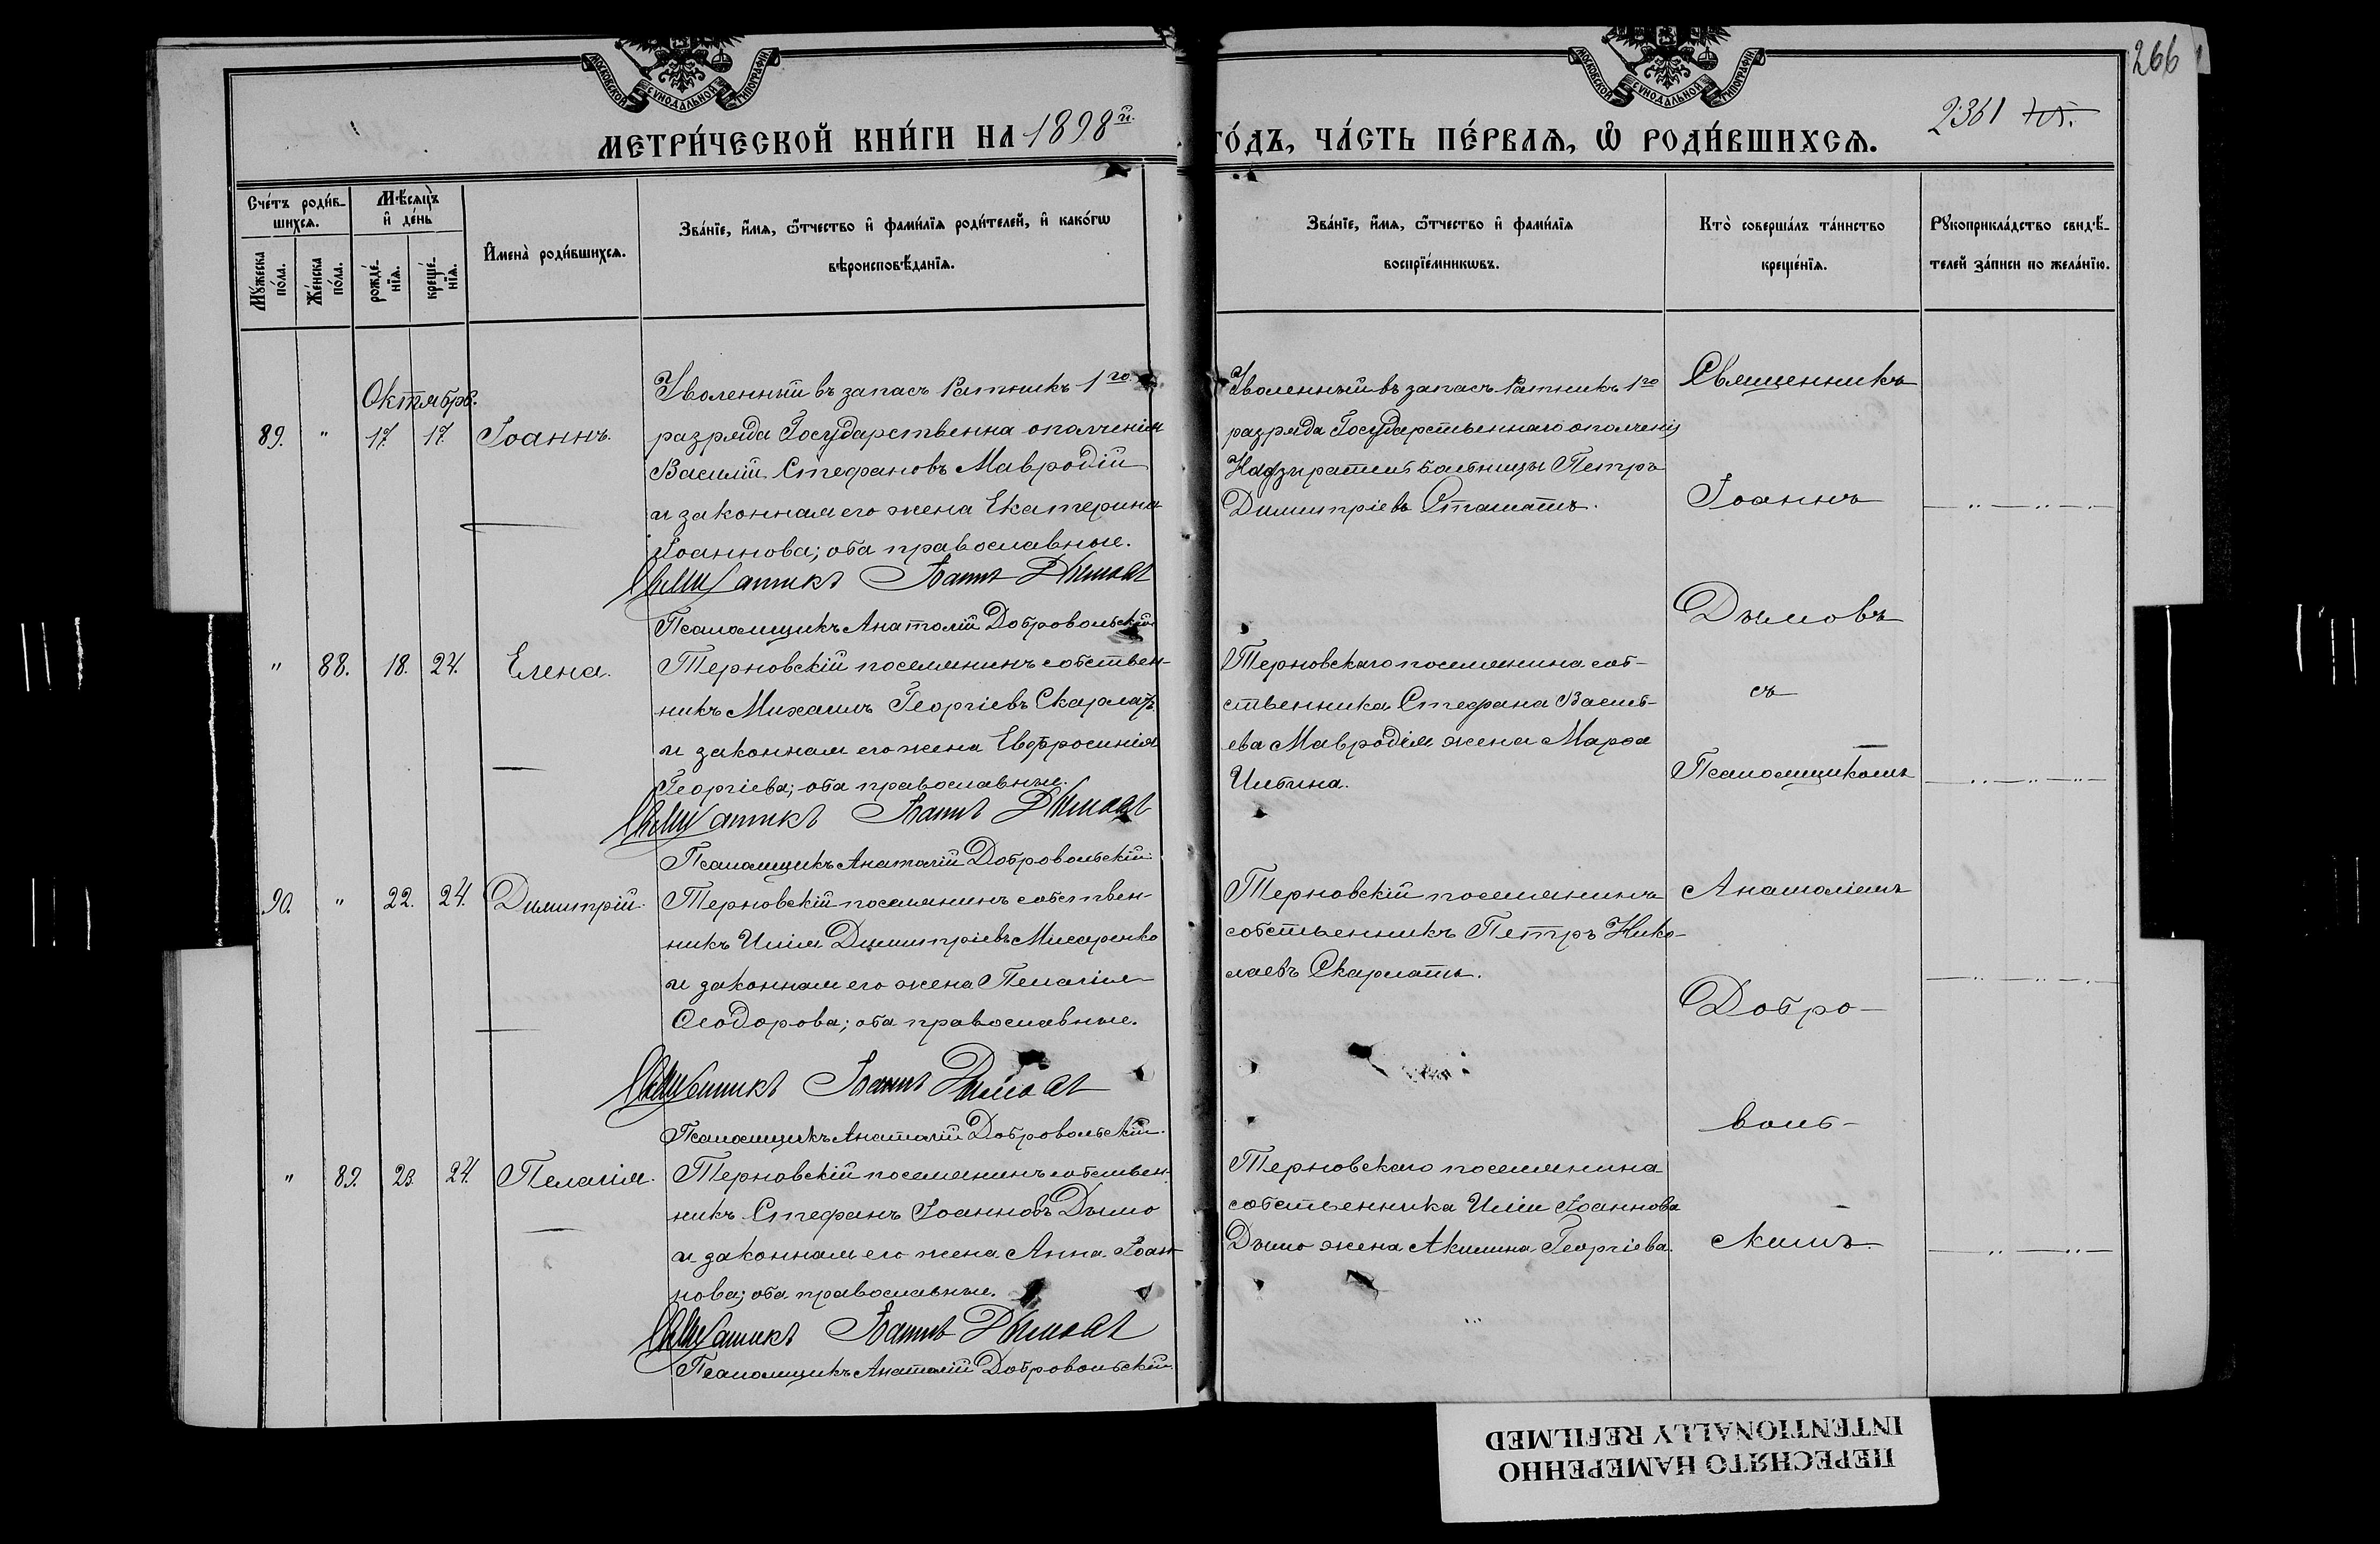 266
2361
МОСКОВСКОЙ СѴНОДАЛЬНОЙ ТИПОГРАФІИ
МОСКОВСКОЙ СѴНОДАЛЬНОЙ ТИПОГРАФІИ
МЕТРИ́ЧЕСКОЙ КНИ́ГИ НА 1898й.
ГО́ДЪ, ЧА́СТЬ ПЕ́РВАѦ, Ѽ РОДИ́ВШИХСѦ.
Сче́тъ роди́в-
шихсѧ.
Мꙋ́жеска
по́ла.
Же́нска
по́ла.
Мѣ́сѧцъ
и҆ де́нь
рожде́-
нїѧ.
креще́-
нїѧ.
И҆мена̀ роди́вшихсѧ.
Зва́нїе, и҆́мѧ, ѻ҆́тчество и҆ фами́лїѧ роди́телей, и҆ како́гѡ
вѣроисповѣ́данїѧ.
Зва́нїе, и҆́мѧ, ѻ҆́тчество и҆ фами́лїѧ
воспрїе́мникѡвъ.
Кто̀ соверша́лъ та́инство
креще́нїѧ.
Рꙋкоприкла́дство свидѣ́-
телей за́писи по жела́нїю.
Октябрь.
89. " 17. 17. Іоаннъ.
Уволенный въ запасъ Ратникъ 1го
разряда Государственна ополченія
Василій Стефановъ Мавродій
и законная его жена Екатерина
Іоаннова; оба православные.
Священникъ Іоаннъ Дымовъ
Псаломщикъ Анатолій Добровольскій
Уволенный въ запасъ Ратникъ 1го
разряда Государственнаго ополченія
Надзиратель больницы Петръ
Димитріевъ Стаматъ.
" 88. 18. 24. Елена.
Терновскій поселянинъ собствен-
никъ Михаилъ Георгіевъ Скарлатъ
и законная его жена Евфросинія
Георгіева; оба православные.
Священникъ Іоаннъ Дымовъ
Псаломщикъ Анатолій Добровольскій
Терновскаго поселянина соб-
ственника Стефана Василь-
ева Мавродія жена Марѳа
Ильина.
90. " 22. 24. Димитрій.
Терновскій поселянинъ собствен-
никъ Илія Димитріевъ
и законная его жена Пелагія
Ѳеодорова; оба православные.
Священникъ Іоаннъ Дымовъ
Псаломщикъ Анатолій Добровольскій.
Терновскій поселянинъ
собственникъ Петръ Нико-
лаевъ Скарлатъ.
" 89. 23. 24. Пелагія.
Терновскій поселянинъ собствен-
никъ Стефанъ Іоанновъ Дымо
и законная его жена Анна Іоан-
нова; оба православные.
Священникъ Іоаннъ Дымовъ
Псаломщикъ Анатолій Добровольскій.
Терновскаго поселянина
собственника Иліи Іоаннова
Дымо жена Акилина Георгіева.
Священникъ
Іоаннъ
Дымовъ
съ
Псаломщикомъ
Анатоліемъ
Добро-
воль-
скимъ.
ПЕРЕСНЯТО НАМЕРЕННО
INTENTIONALLY REFILMED